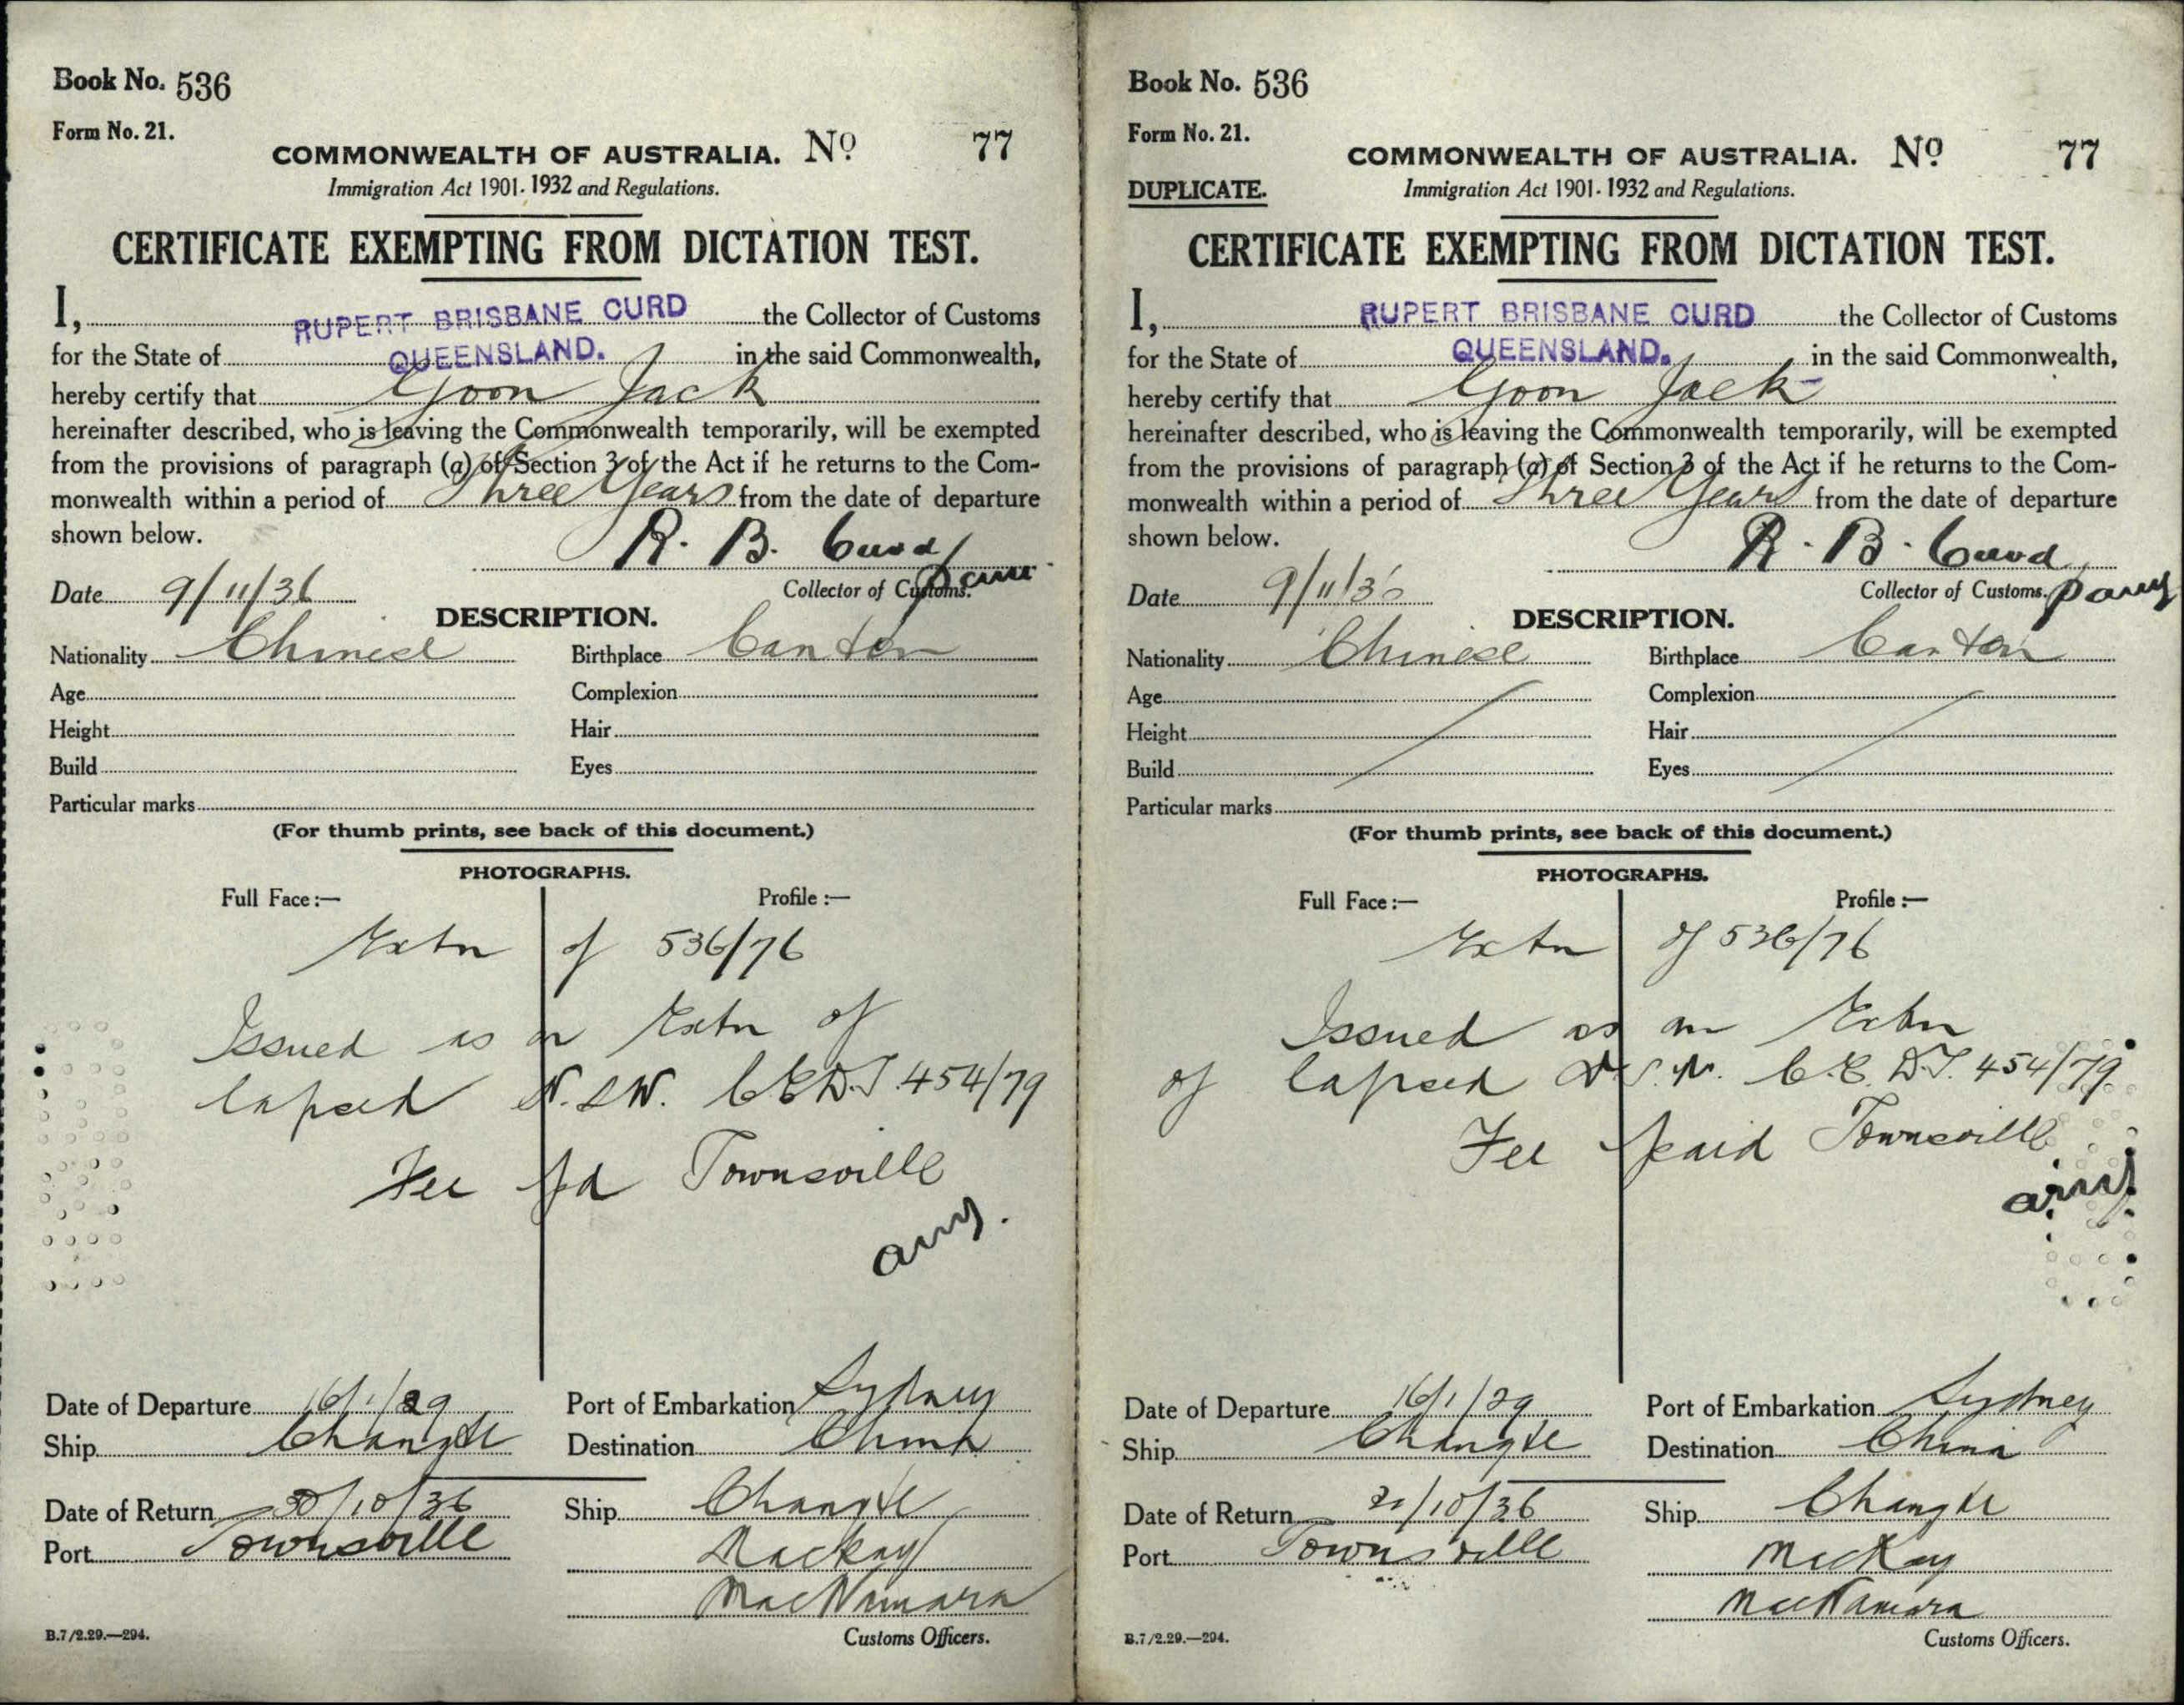 Book No. 536
Form No. 21.
COMMONWEALTH OF AUSTRALIA. No 77
Immigration Act 1901-1932 and Regulations.
CERTIFICATE EXEMPTING FROM DICTATION TEST.
I, RUPERT BRISBANE CURD the Collector of Customs
for the State of QUEENSLAND. in the said Commonwealth,
hereby certify that Goon Jack
hereinafter described, who is leaving the Commonwealth temporarily, will be exempted
from the provisions of paragraph (a) of Section 3 of the Act if he returns to the Com-
monwealth within a period of Three Years from the date of departure
shown below.
R. B. Curd
Date 9/11/36 Collector of Customs.
DESCRIPTION.
Nationality Chinese Birthplace Canton
Age Complexion
Height Hair
Build Eyes
Particular marks
(For thumb prints, see back of this document.)
PHOTOGRAPHS.
Full Face :— Profile :—
Extn of 536/76
Issued as an Extn of
lapsed N.S.W. C.E.D.T. 454/79
Fee pd Townsville
Date of Departure 16/1/29 Port of Embarkation Sydney
Ship Changte Destination China
Date of Return 30/10/36 Ship Changte
Port Townsville Mackay
MacNamara
B.7/2.29.—294. Customs Officers.
Book No. 536
Form No. 21.
COMMONWEALTH OF AUSTRALIA. No 77
DUPLICATE. Immigration Act 1901-1932 and Regulations.
CERTIFICATE EXEMPTING FROM DICTATION TEST.
I, RUPERT BRISBANE CURD the Collector of Customs
for the State of QUEENSLAND. in the said Commonwealth,
hereby certify that Goon Jack
hereinafter described, who is leaving the Commonwealth temporarily, will be exempted
from the provisions of paragraph (a) of Section 3 of the Act if he returns to the Com-
monwealth within a period of Three Years from the date of departure
shown below.
R. B. Curd
Date 9/11/36 Collector of Customs.
DESCRIPTION.
Nationality Chinese Birthplace Canton
Age Complexion
Height Hair
Build Eyes
Particular marks
(For thumb prints, see back of this document.)
PHOTOGRAPHS.
Full Face :— Profile :—
Extn of 536/76
Issued as an Extn
of lapsed N.S.W. C.E.D.T. 454/79
Fee paid Townsville
Date of Departure 16/1/29 Port of Embarkation Sydney
Ship Changte Destination China
Date of Return /10/36 Ship Changte
Port Townsville MacKay
MacNamara
B.7/2.29.—294. Customs Officers.